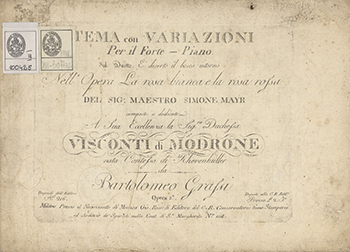 TEMA con VARIAZIONI
Per il Forte-Piano
Sul Duetto È deserto il bosco intorno
Nell' Opera La rosa bianca e la rosa rossa
DEL SIG: MAESTRO SIMONE MAYR
composte e dedicate
A Sua Eccellenza la Sig.ra Duchessa
VISCONTI di MODRONE
nata Contessa di Khevenhüller
da
Bartolomeo Grassi
Opera
Milano Presso il Negoziante di Musica Gio. Ricordi Editore del C. R. Conservatorio